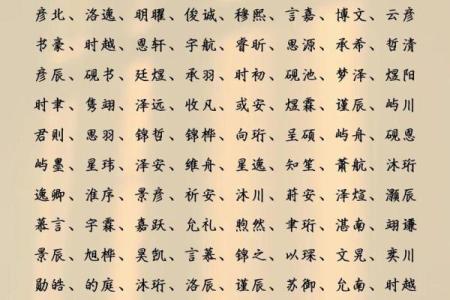 彦北、洛逸、明曜、俊诚、穆熙、言嘉、博文、云彦
书豪、时越、思轩、宇航、睿昕、思源、承希、哲清
彦辰、砚书、廷煜、承羽、时初、砚池、梦泽、煜阳
时聿、隽翊、泽远、收凡、或安、煜霖、谨辰、屿川
君则、思羽、锦哲、锦桦、向珩、呈硕、屿舟、砚恩
屿墨、星玮、泽安、维舟、星逸、知笙、萧航、沐珩
逸卿、淮序、景彦、祈安、沐川、蔚安、泽煊、灏辰
慕言、宇霖、嘉跃、允礼、煦然、聿珩、湛南、翊谦
景辰、旭桦、昊凯、言慕、锦之、以琛、文晃、奕川
勋皓、的庭、沐珩、洛辰、谨辰、苏御、允南、时越